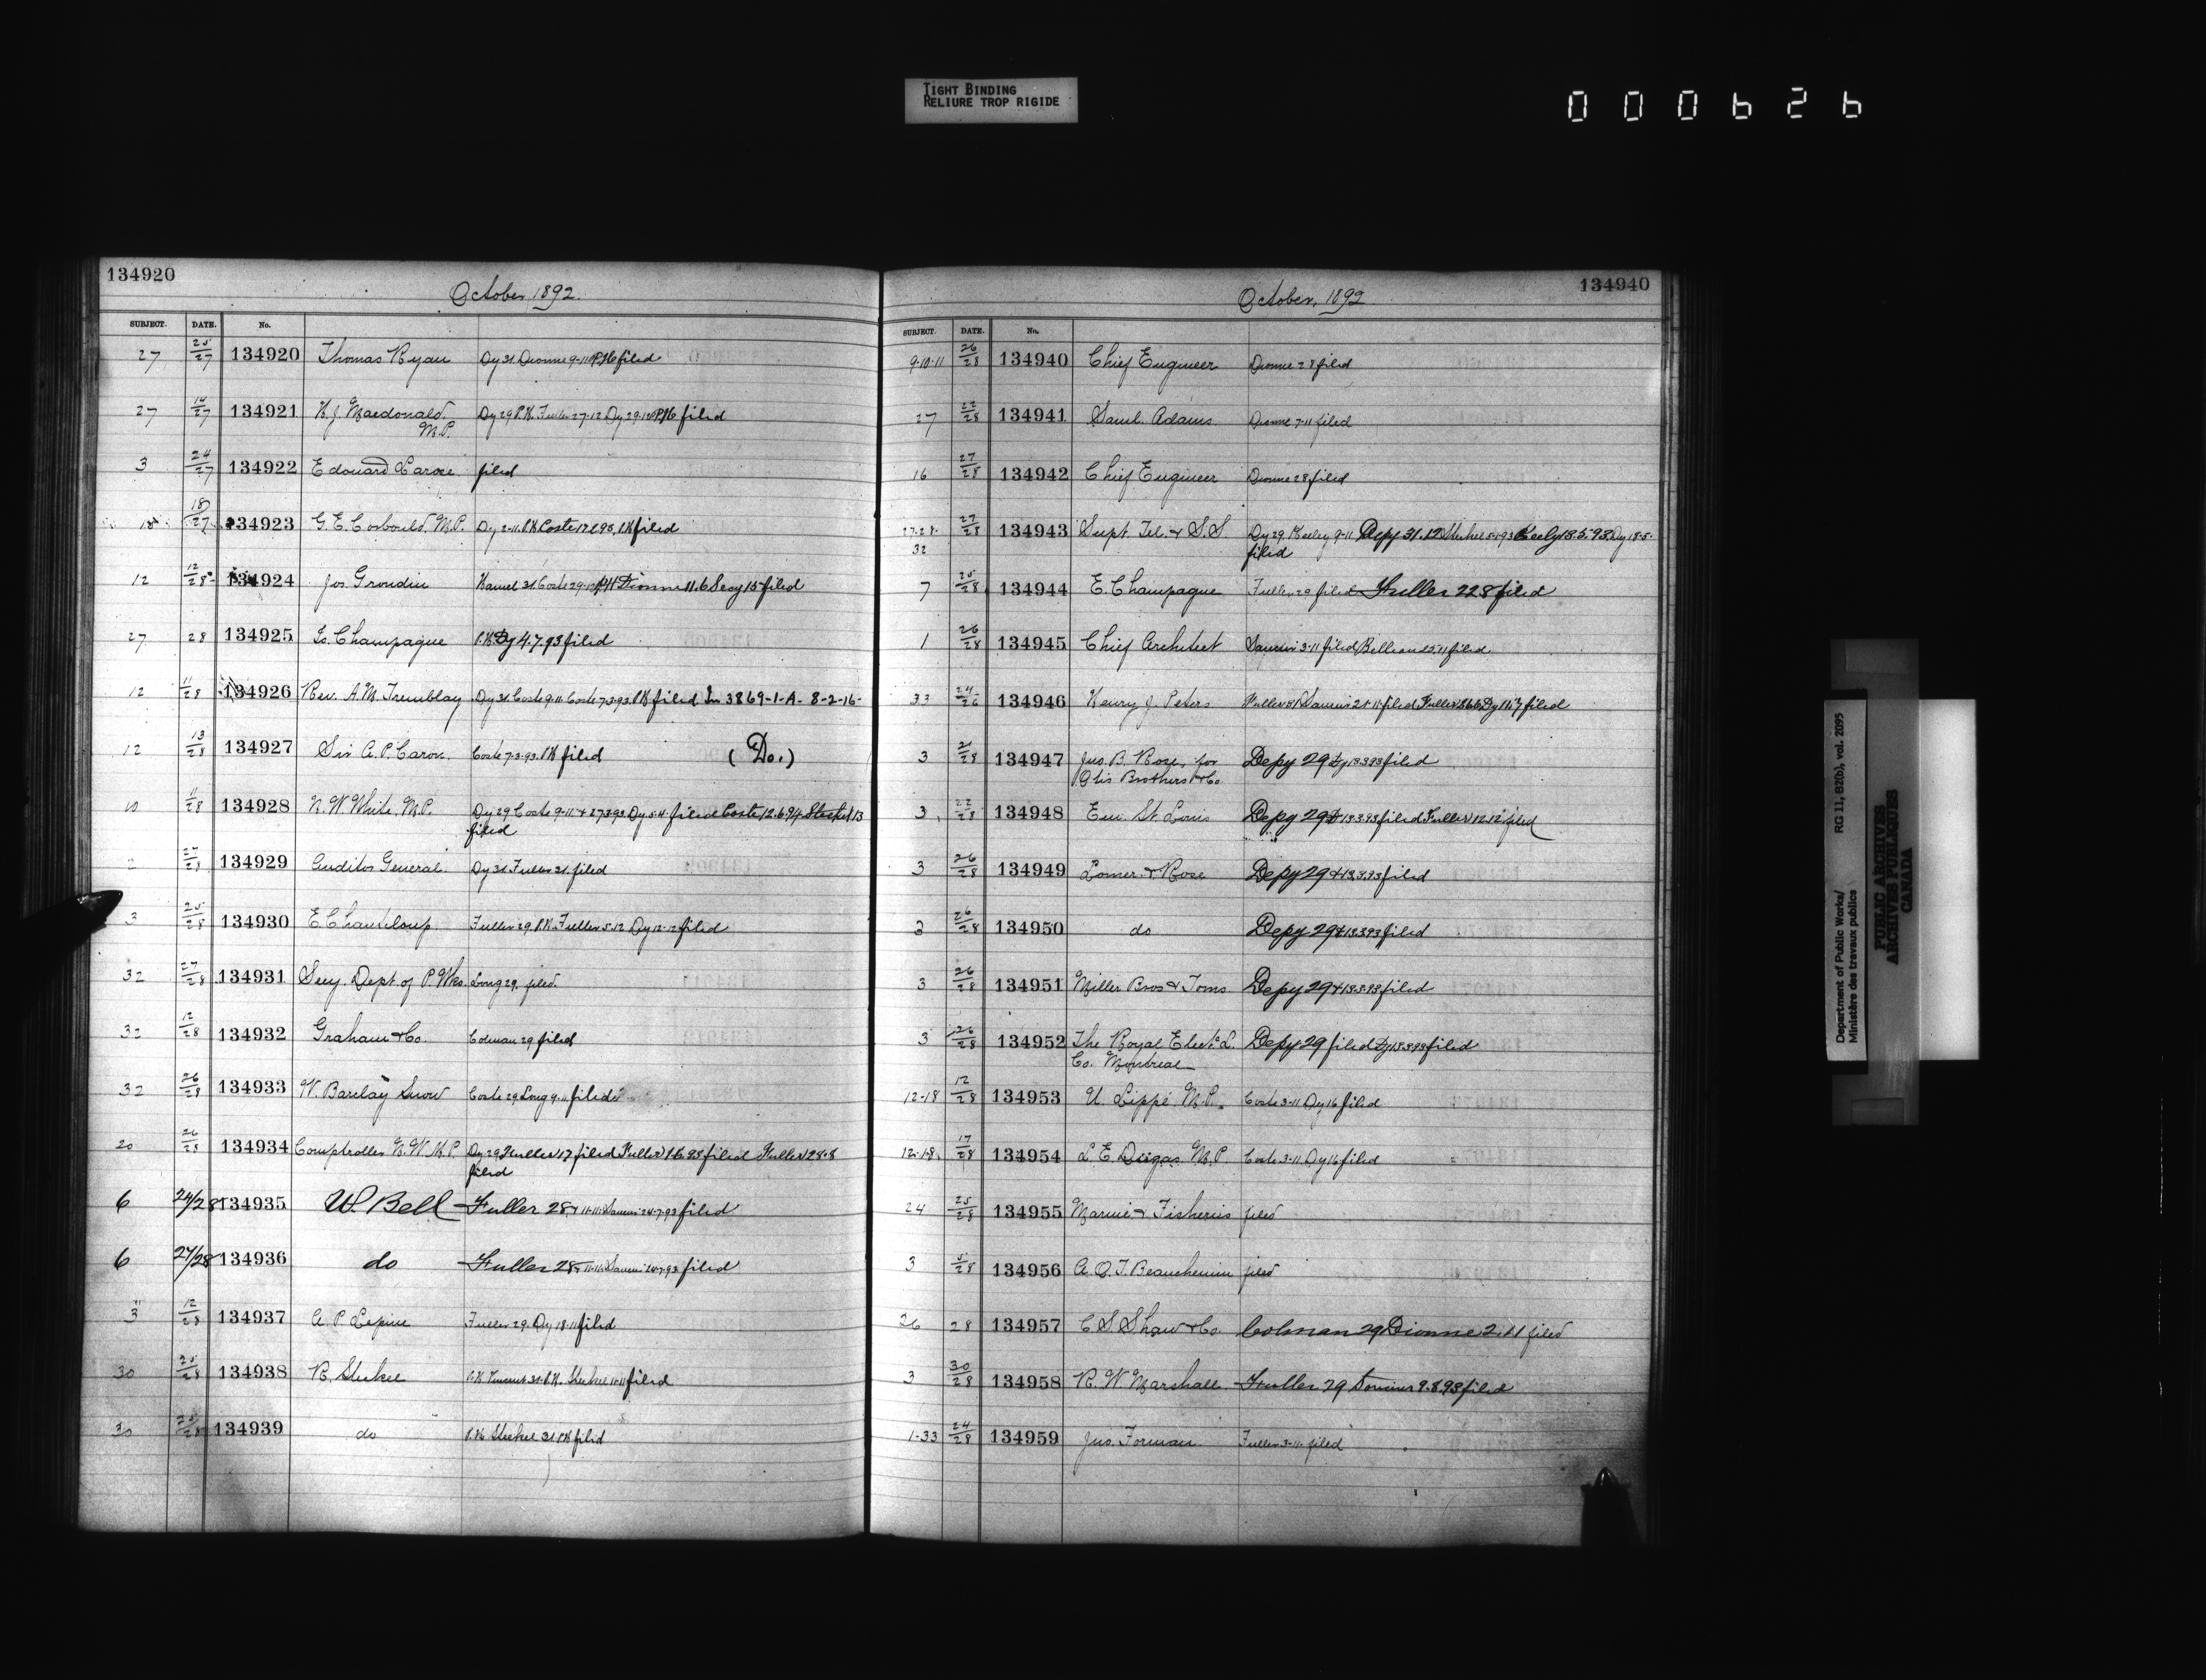 TIGHT BINDING
RELIURE TROP RIGIDE
000626
134920
October 1892.
SUBJECT. DATE. No.
27 25/27 134920 Thomas Ryan Dy 31 Dionne 9-11 P.K filed
27 14/27 134921 H. J. Macdonald Dy 29 P.K. Fuller 27-12 Dy 29-12 P.K filed
M.P.
3 24/27 134922 Edouard filed
18 18/27 134923 G. E. Corbould M.P. Dy 2-11. P.K Coste P.K filed
12 12/28 134924 Jos. Grondin Hamel 31 Coste 29-12 Dionne 11.6 Secy 15 filed
27 28 134925 Ls. Champagne P.K. Dy 4.7.93 filed
12 11/28 134926 Rev. A. M. Tremblay Dy 31 Coste 9-11 Coste 7-3-93. P.K filed In 3869-1-A- 8-2-16-
12 13/28 134927 Sir A. P. Caron. Coste 7-3-93. P.K filed (Do.)
10 11/28 134928 N. W. White M.P. Dy 29 Coste 9-11 & 27.3.93 Dy 5-4- filed Coste 12.6.94 Steckel 13
filed
2 27/28 134929 Auditor General. Dy 31 Fuller 31. filed
3 25/28 134930 E Chanteloup Fuller 29 P.K Fuller 5-12 Dy 12-12 filed
32 27/28 134931 Secy. Dept of P. Wks. Long 29, filed.
32 12/28 134932 Graham & Co. Colman 29 filed
32 26/28 134933 W. Barclay Snow Coste 29 Long 9-11 filed
20 26/28 134934 Comptroller N. W. M. P. Dy 29 Fuller 17 filed Fuller filed Fuller 28-8
filed
6 24/28 134935 W. Bell Fuller 28 & 11-11 24-7-93 filed
6 24/28 134936 do Fuller 28 & 11-11 filed
3 12/28 134937 A. P. Lepine Fuller 29. Dy 18-11 filed
30 25/28 134938 R. Steckel P.K 31. P.K. Steckel 11-11 filed
30 25/28 134939 do P.K Steckel 31 P.K filed
134940
October, 1892
SUBJECT. DATE. No.
9-10-11 26/28 134940 Chief Engineer Dionne 28 filed
27 22/28 134941 Saml. Adams. Dionne 7-11 filed
16 27/28 134942 Chief Engineer Dionne 28 filed
27-28- 27/28 134943 Supt. Tel. & S.S Dy 29 Keeley 9-11 Depy 31.12 Steckel 5-1-93 Keely 18.5.93 Dy 18-5-
32 filed
7 25/28 134944 E. Champagne Fuller 29 filed Fuller 22.8 filed
1 26/28 134945 Chief Architect 3-11 filed filed
33 24/26 134946 Henry J. Peters Fuller filed Fuller Dy filed
3 21/28 134947 Jno. B. Rose, for Depy 29 Dy 13.3.93 filed
Otis Brothers & Co.
3 22/28 134948 Em. St. Louis Depy 29 & 13.3.93 filed Fuller 12.12 filed
3 26/28 134949 & Rose Depy 29 & 13.3.93 filed
2 26/28 134950 do Depy 29 & 13.3.93 filed
3 26/28 134951 Miller Bros & Toms. Depy 29 & 13.3.93 filed
3 26/28 134952 The Royal Elect. L. Depy 29 filed Dy 13.3.93 filed
Co. Montreal
12-18 12/28 134953 U. Lippé M.P. Coste 3-11 Dy 16 filed
12-18. 17/28 134954 L. E. Dugas M.P. Coste 3-11 Dy 16 filed
24 25/28 134955 Marine & Fisheries filed
3 5/28 134956 A. O. T. Beauchemin filed
26 28 134957 C S Shaw & Co. Colman 29 Dionne 2.11 filed
3 30/28 134958 R. W Marshall Fuller 29 9.8.93 filed
1-33 24/28 134959 Jno. Forman Fuller 3-11- filed
Department of Public Works/
Ministère des travaux publics
RG 11, B2(b), vol. 2095
PUBLIC ARCHIVES
ARCHIVES PUBLIQUES
CANADA